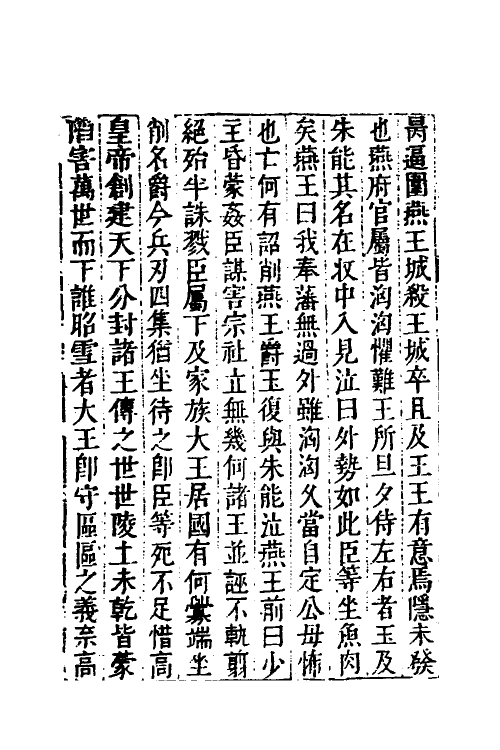 昺逼圍燕王城殺王城卒且及王王有意焉隱未發
也燕府官屬皆洶洶懼難王所旦夕侍左右者玉及
朱能其名在收中入見泣曰外勢如此臣等坐魚肉
矣燕王曰我奉藩無過外雖洶洶久當自定公毋怖
也亡何有詔削燕王爵玉復與朱能泣燕王前曰少
主昏蒙姦臣謀害宗社立無幾何諸王並誣不軌翦
絕殆半誅戮臣屬下及家族大王居國有何釁端坐
削名爵今兵刃四集猶坐待之卽臣等死不足惜高
皇帝創建天下分封諸王傳之世世陵土未乾皆蒙
陷害萬世而下誰昭雪者大王卽守區區之義柰高